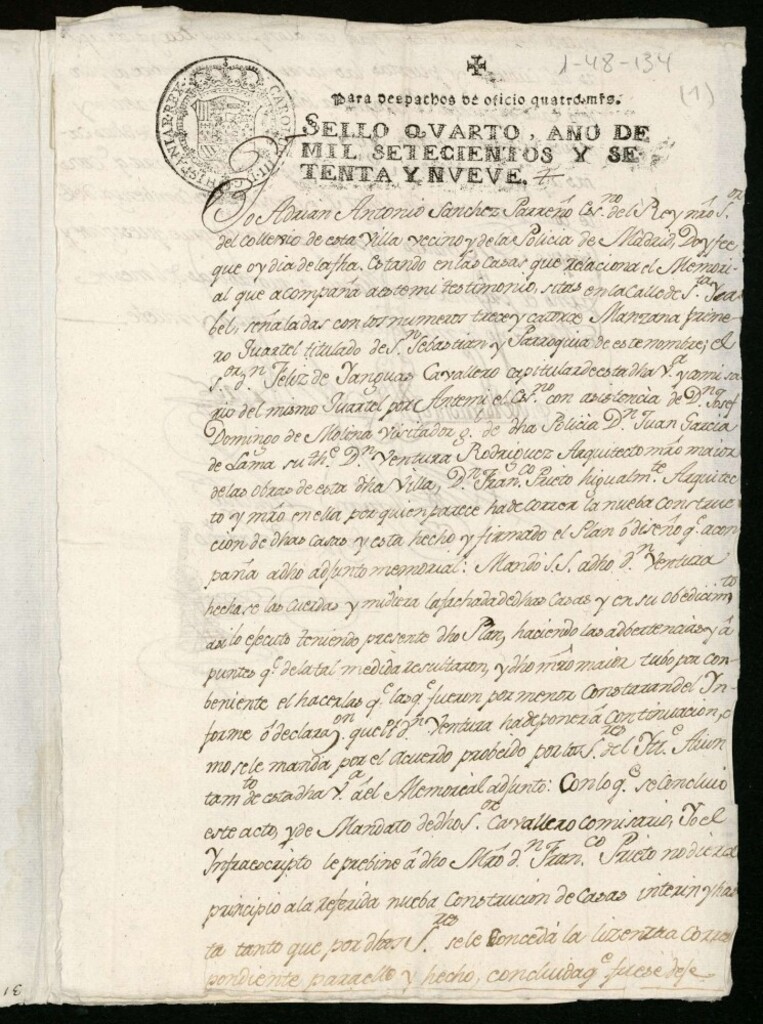 1-48-134
(1)
CAROLUS III D G HISPANIAR REX
Para despachos de oficio quatro mrs.
SELLO QVARTO, AÑO DE
MIL SETECIENTOS Y SE-
TENTA Y NVEVE.
Yo Adrian Antonio Sanchez Parreño Es.no del Rey nrõ S.or
del collexio de esta Villa vecino y de la Policia de Madrid, Doy fee
que oy dia de la fha. Estando en las Casas que relaciona el Memori-
al que acompaña a este mi testimonio, sitas en la Calle de S.ta Ysa-
bel, señaladas con los numeros trece y catorce Manzana prime-
ro Quartel titulado de S.n Sebastian y Parroquia de este nombre; el
S.or d.n Feliz de Yanguas Cavallero capitular de esta dha V.a y comisa-
rio del mismo Quartel por Antemi el Es.no con asistencia de D.n Josef
Domingo de Molina Visitador g. de dha Policia D.n Juan Garcia
de Lama su the. D.n Ventura Rodriguez Arquitecto mrõ maior
de las obras de esta dha Villa, D.n Fran.co Prieto higualm.te Arquitec-
to y mrõ en ella por quien parece ha de correr la nueba Construc-
cion de dhas Casas y esta hecho y firmado el Plan ó diseño q.e acom
paña a dho adjunto memorial: Mandó S.S. a dho d.n Ventura
hechase las cuerdas y midiera la fachada de dhas Casas y en su obedicim.to
asi lo ejecuto teniendo presente dho Plan, haciendo las adbertencias y a
puntes q.e de la tal medida resultaron, y dho mrõ maior tubo por con-
beniente el hacerlas q.e las q.e fueron por menor Constaran del Yn-
forme ó declara.on que el d.n Ventura ha de poner á continuacion, co
mo se le manda por el acuerdo probeido por los S.res del Ytt.e Aiun
tam.to de esta dha V.a á el Memorial adjunto: Con lo q.e se concluio
este acto, y de Mandato de dho S.or Cavallero Comisario, Yo el
Ynfraescripto le prebine á dho Mrõ d.n Fran.co Prieto no diera
principio a la referida nueba Construcion de Casas interin y has
ta tanto que por dhos S.res se le conceda la lizenzia Corres
pondiente para ello y hecho, concluida q.e fuese dese